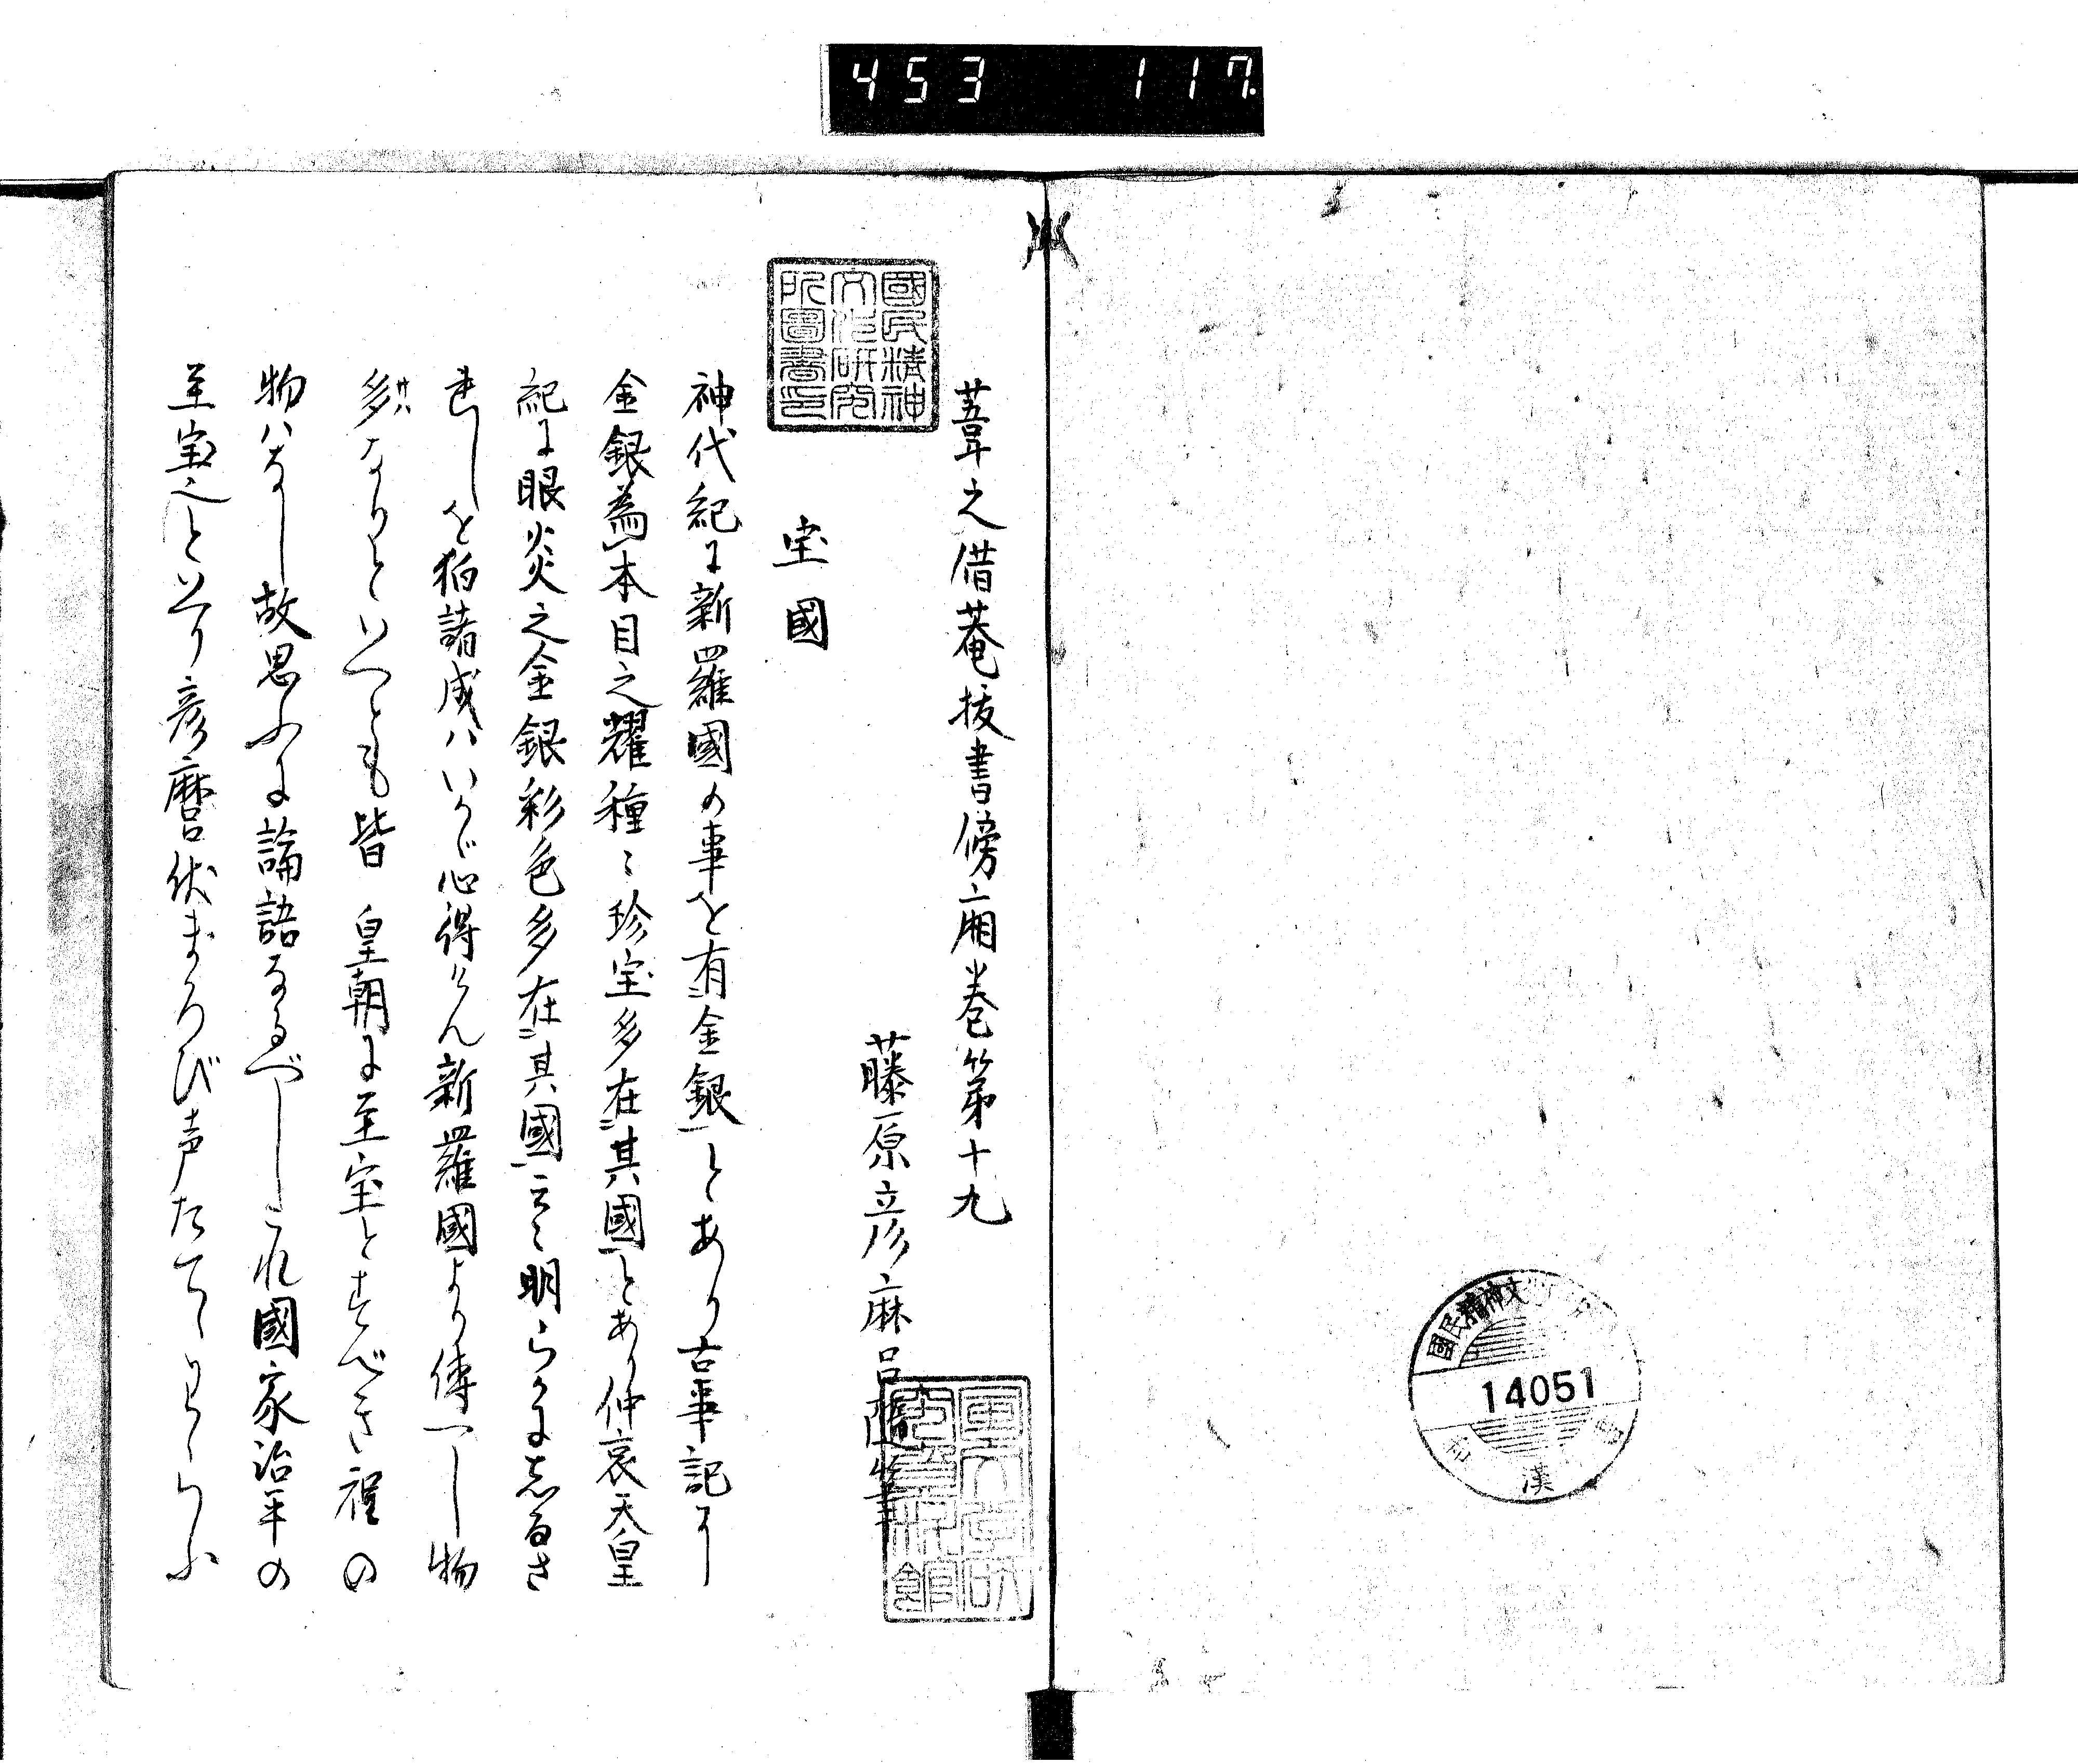 453 117
葦之借菴抜書傍廂巻第十九
藤原彦麻呂随筆
宝國
神代紀に新羅國の事を有金銀とあり古事記に
金銀為本目之耀種々珍宝多在其國とあり仲哀天皇
紀に眼炎之金銀彩色多在其國云々明らかにしるさ
れしを狛諸成ハいかゞ心得けん新羅國より傳へし物
多かりといへとも皆 皇朝に至宝とすべき程の
物ハなし故思ふに論語なるべしこれ國家治平の
至宝也といへり彦麿伏まろび声たてゝわらふ
國民精神文化研究所圖書印
國民精神文
14051
漢